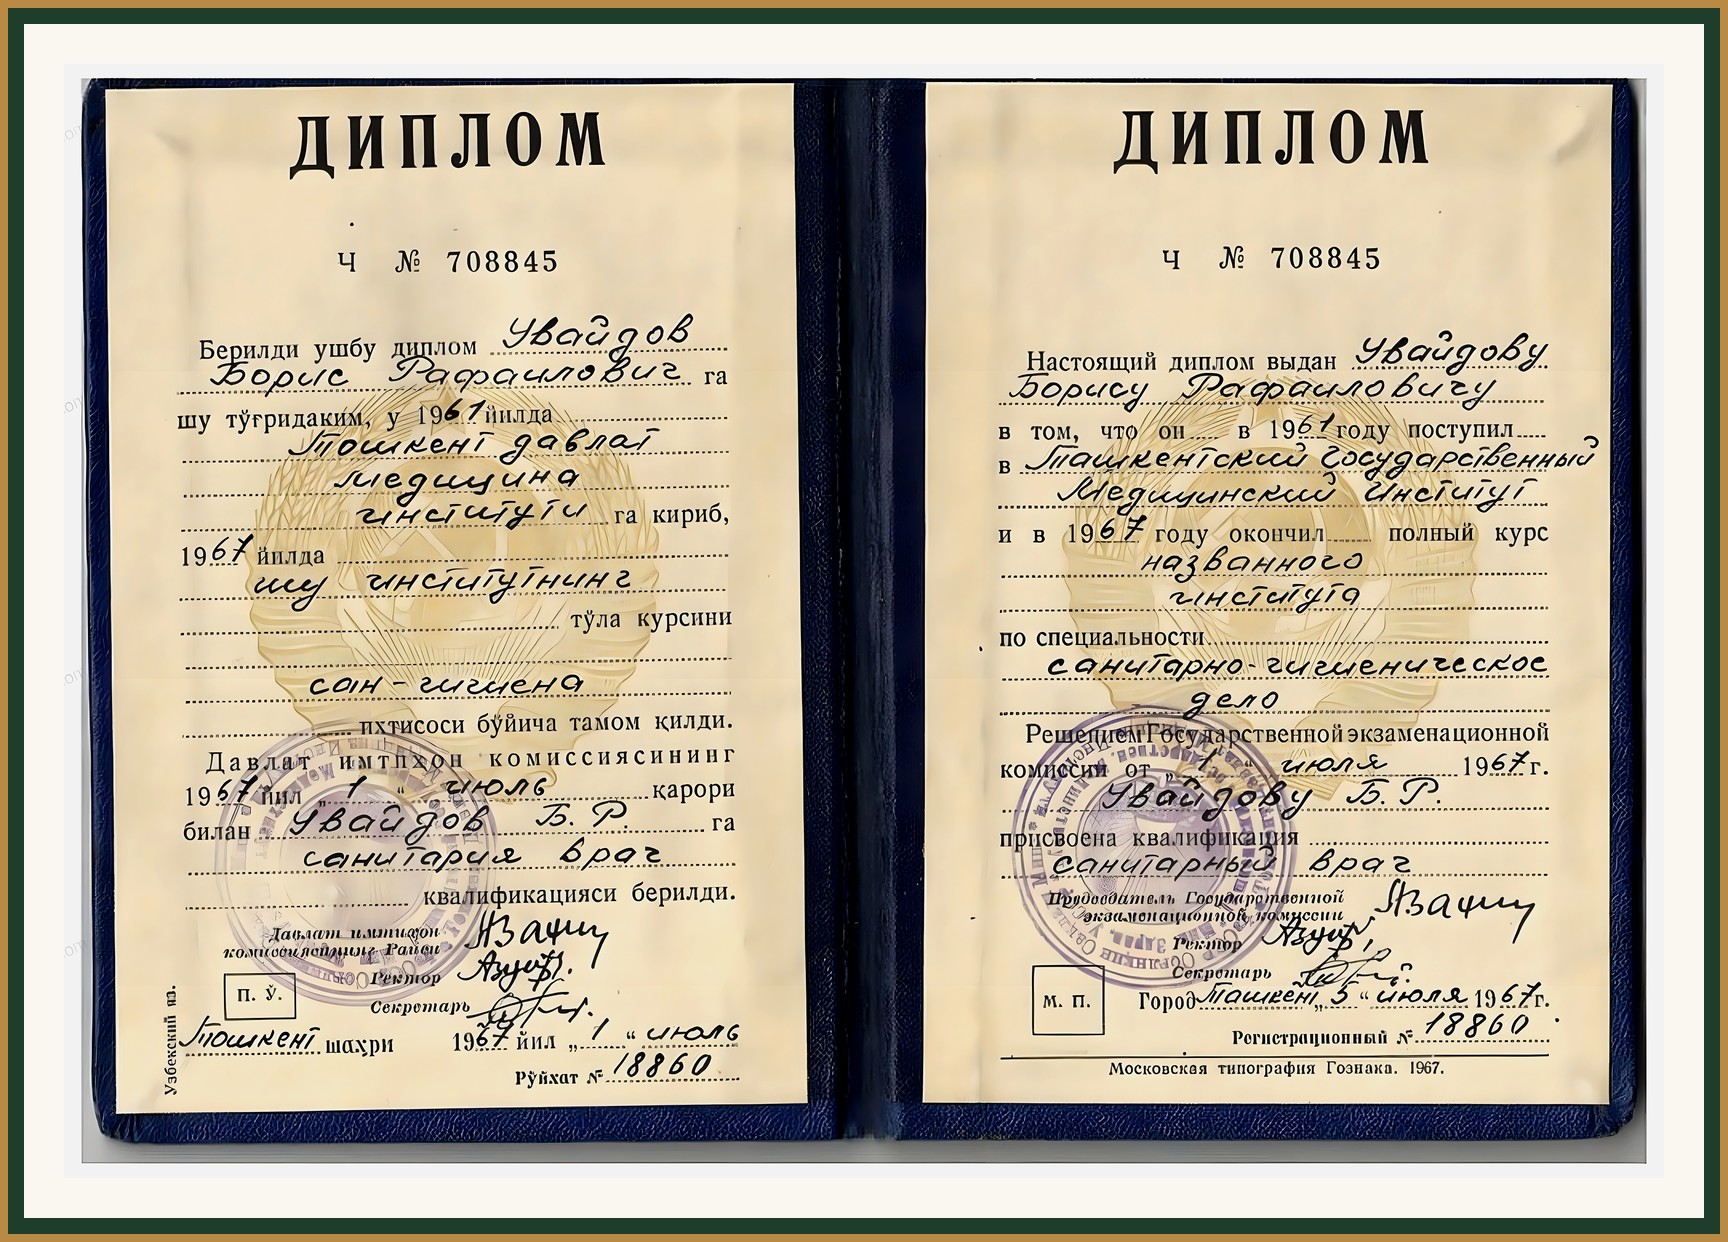 ДИПЛОМ
Ч № 708845
Берилди ушбу диплом Увайдов
Борис Рафаилович га
шу тўғридаким, у 1961 йилда
Тошкент давлат
медицина
институти га кириб,
1967 йилда
шу институтнинг
тўла курсини
сан-гигиена
ихтисоси бўйича тамом қилди.
Давлат имтиҳон комиссиясининг
1967 йил „ 1 “ июль қарори
билан Увайдов Б. Р. га
санитария врач
квалификацияси берилди.
Давлат имтиҳон
комиссиясининг Раиси
Ректор
П. Ў.
Секретарь
Тошкент шаҳри 1967 йил „ 1 “ июль
Рўйхат № 18860
Узбекский яз.
ДИПЛОМ
Ч № 708845
Настоящий диплом выдан Увайдову
Борису Рафаиловичу
в том, что он в 1961 году поступил
в Ташкентский Государственный
Медицинский Институт
и в 1967 году окончил полный курс
названного
института
по специальности
санитарно-гигиеническое
дело
Решением Государственной экзаменационной
комиссии от „ 1 “ июля 1967 г.
Увайдову Б. Р.
присвоена квалификация
санитарный врач
Председатель Государственной
экзаменационной комиссии
Ректор
Секретарь
М. П.
Город Ташкент „ 5 “ июля 1967 г.
Регистрационный № 18860
Московская типография Гознака. 1967.